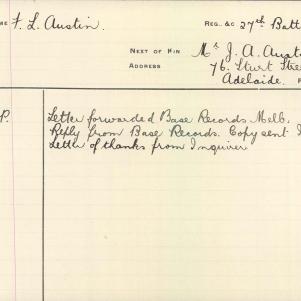 ME F. L. Austin. REG. &C 27th Batt
NEXT OF KIN Mr J. A. Aust
ADDRESS 76. Sturt Stre
Adelaide.
P. Letter forwarded Base Records. Melb.
Reply from Base Records. Copy sent I
Letter of thanks from Inquirer